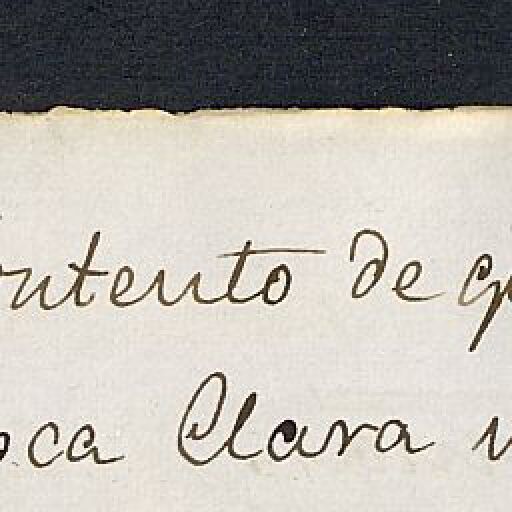 ontento de q
oca Clara